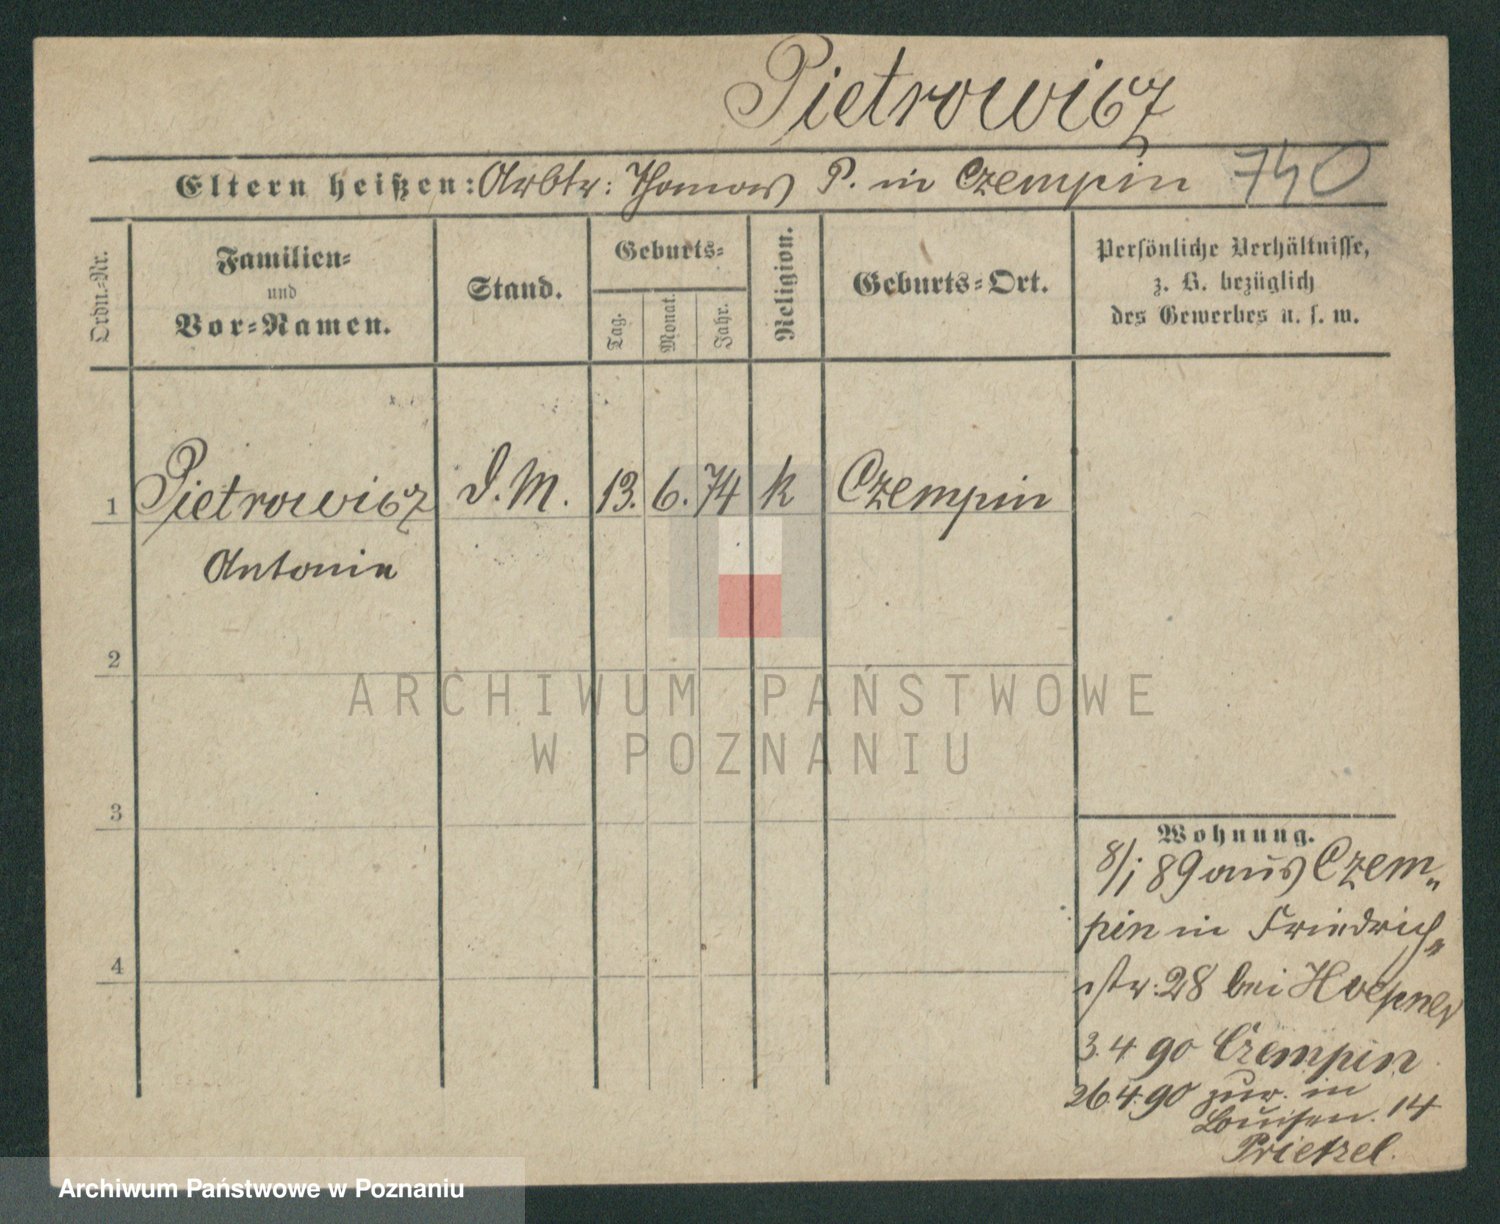 Pietrowicz
Eltern heißen: Arbtr: Thomas P. in Czempin 740
Ordn.-Nr.
Familien-
und
Vor-Namen.
Stand.
Geburts-
Tag.
Monat.
Jahr.
Religion.
Geburts-Ort.
Persönliche Verhältnisse,
z. B. bezüglich
des Gewerbes u. s. w.
1 Pietrowicz D. M. 13. 6. 74 k Czempin
Antonie
2
3
4
Wohnung.
8/1 89 aus Czem-
pin in Friedrich-
str. 28 bei Hoepner
3.4 90 Czempin
26.4.90 zur. in
Louisen. 14
Prietzel.
ARCHIWUM PAŃSTWOWE
W POZNANIU
Archiwum Państwowe w Poznaniu